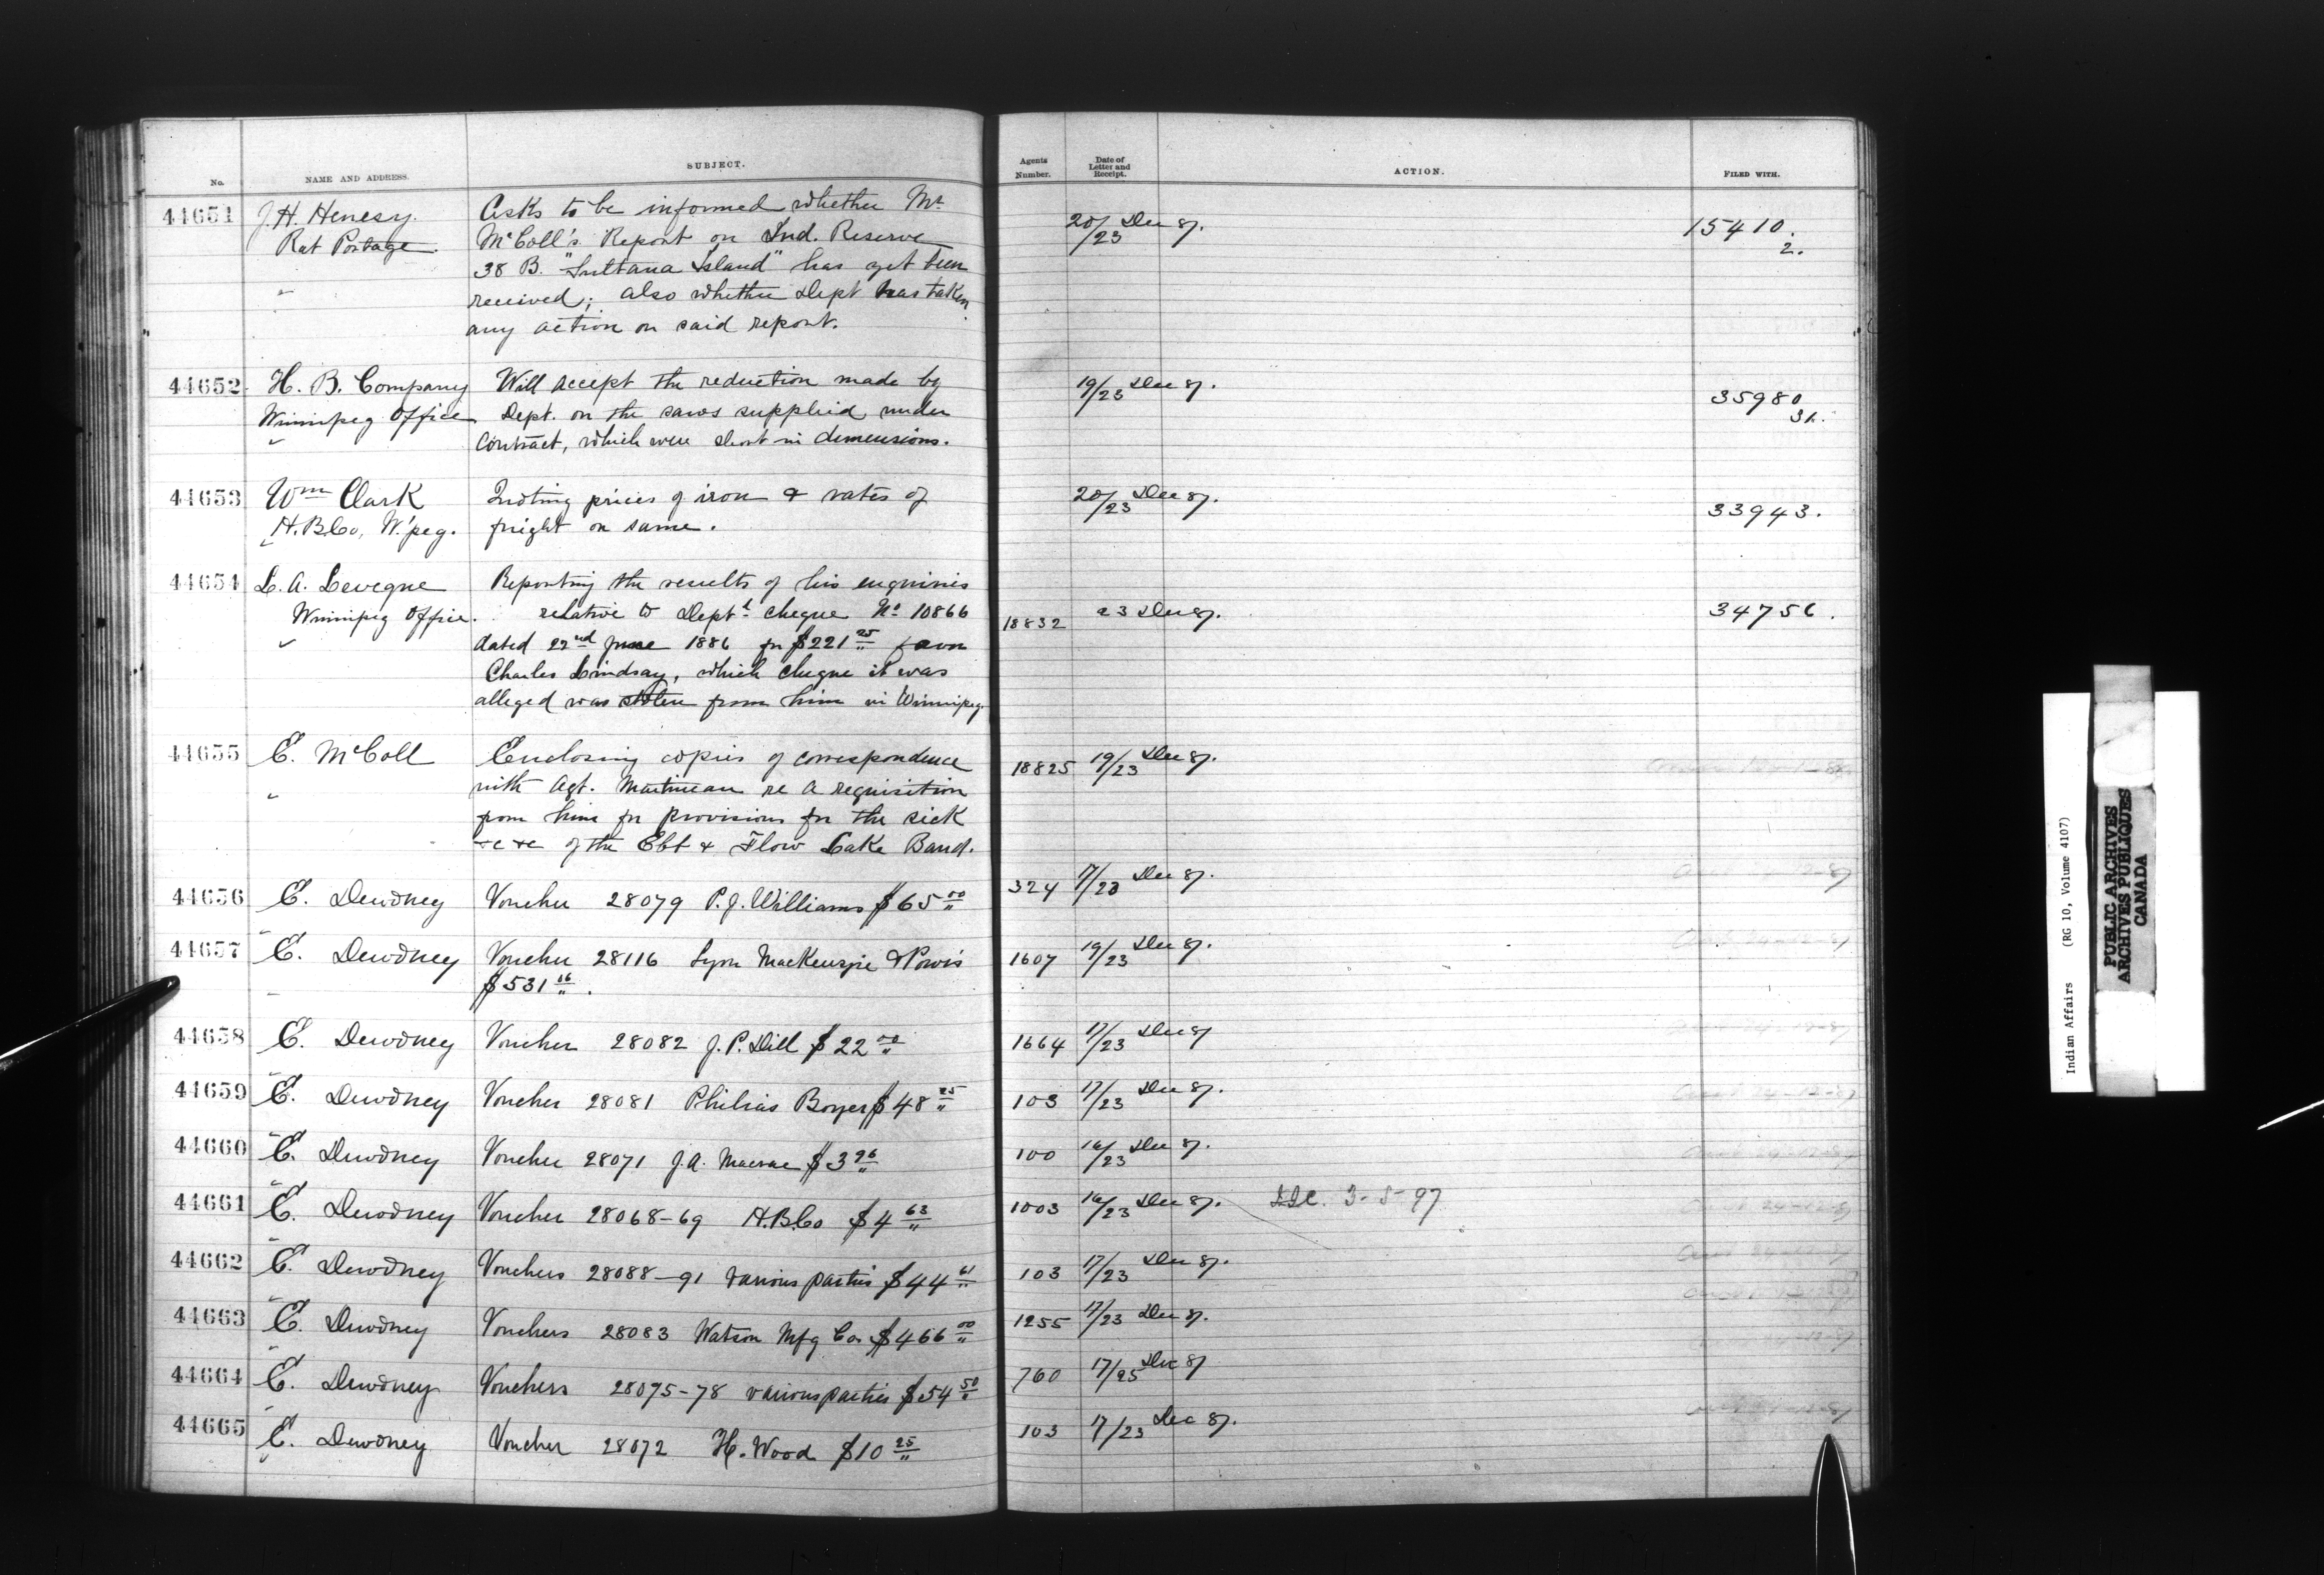 No. NAME AND ADDRESS. SUBJECT. Agents Number. Date of Letter and Receipt. ACTION. FILED WITH.
44651 J. H. Henesy. Asks to be informed whether Mr 20/23 Dec 87. 15410.
Rat Portage. McColl's Report on Ind. Reserve 2.
38 B. "Sultana Island" has yet been
received; also whether Dept has taken
any action on said report.
44652 H. B. Company Will accept the reduction made by 19/23 Dec 87. 35980
Winnipeg Office Dept. on the saws supplied under 31.
contract, which were short in dimensions.
44653 Wm Clark Quoting prices of iron & rates of 20/23 Dec 87. 33943.
H.B.Co, W'peg. freight on same.
44654 L. A. Levegne Reporting the results of his enquiries
Winnipeg Office. relative to Deptl cheque No 10866 18832 23 Dec 87. 34756.
dated 22nd June 1886 for $221 25 favor
Charles Lindsay, which cheque it was
alleged was stolen from him in Winnipeg.
44655 E. McColl Enclosing copies of correspondence 18825 19/23 Dec 87.
with Agt. Martineau re a requisition
from him for provisions for the sick
&c &c of the Ebt & Flow Lake Band.
44656 E. Dewdney Voucher 28079 P. J. Williams $65 00 324 17/23 Dec 87.
44657 E. Dewdney Voucher 28116 Lyon MacKenzie & Powis 1607 19/23 Dec 87.
$531 16.
44658 E. Dewdney Voucher 28082 J. P. Dill $22 00 1664 17/23 Dec 87
44659 E. Dewdney Voucher 28081 Philias Boyer $48 25 103 17/23 Dec 87.
44660 E. Dewdney Voucher 28071 J. A. Macrae $3 96 100 16/23 Dec 87.
44661 E. Dewdney Voucher 28068-69 H.B.Co $4 63 1003 16/23 Dec 87. 3-5-97
44662 E. Dewdney Vouchers 28088-91 various parties $44 61 103 17/23 Dec 87.
44663 E. Dewdney Vouchers 28083 Watson Mfg Co. $466 00 1255 17/23 Dec 87.
44664 E. Dewdney Vouchers 28075-78 various parties $54 50 760 17/25 Dec 87
44665 E. Dewdney Voucher 28072 H. Wood $10 25 103 17/23 Dec 87.
Indian Affairs (RG 10, Volume 4107)
PUBLIC ARCHIVES
ARCHIVES PUBLIQUES
CANADA